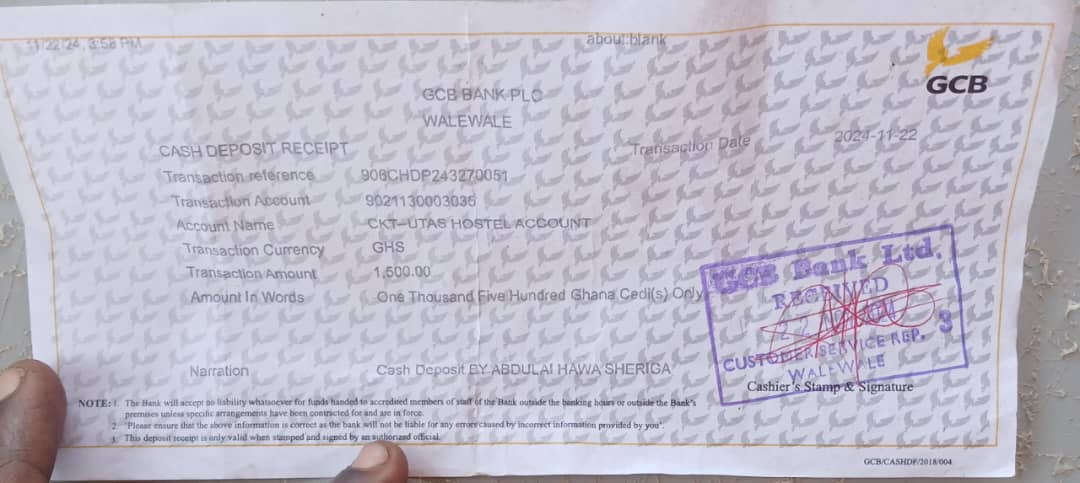 11/22/24, 3:58 PM
about:blank
GCB
GCB BANK PLC
WALEWALE
Transaction Date 2024-11-22
CASH DEPOSIT RECEIPT
Transaction reference 908CHDP243270051
Transaction Account 9021130003035
Account Name CKT-UTAS HOSTEL ACCOUNT
Transaction Currency GHS
Transaction Amount 1,500.00
Amount In Words One Thousand Five Hundred Ghana Cedi(s) Only
GCB Bank Ltd.
RECEIVED
22
CUSTOMER SERVICE REP. 3
WALEWALE
Narration Cash Deposit BY ABDULAI HAWA SHERIGA
Cashier's Stamp & Signature
NOTE: 1. The Bank will accept no liability whatsoever for funds handed to accredited members of staff of the Bank outside the banking hours or outside the Bank's
premises unless specific arrangements have been contricted for and are in force.
2. "Please ensure that the above information is correct as the bank will not be liable for any errors caused by incorrect information provided by you".
3. This deposit receipt is only valid when stamped and signed by an authorized official.
GCB/CASHDP/2018/004